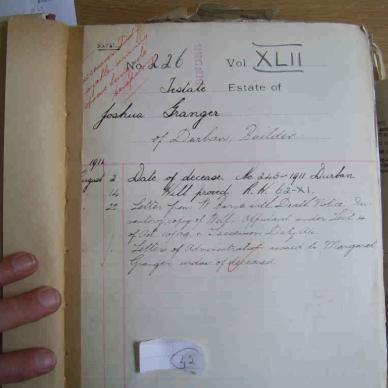 NATAL.
No. 226 Vol XLII
Testate Estate of
Joshua Granger
of Durban, Builder
1912
August 2 Date of decease No. 243-1911 Durban
14 Will proved R.H. 62-XI.
22 Letter from with Death Notice, In-
ventory, copy of Will, Affidavit under Sect. 4
of Act Succession Duty A/c.
Letters of Administration issued to Margaret
Granger widow of deceased.
42